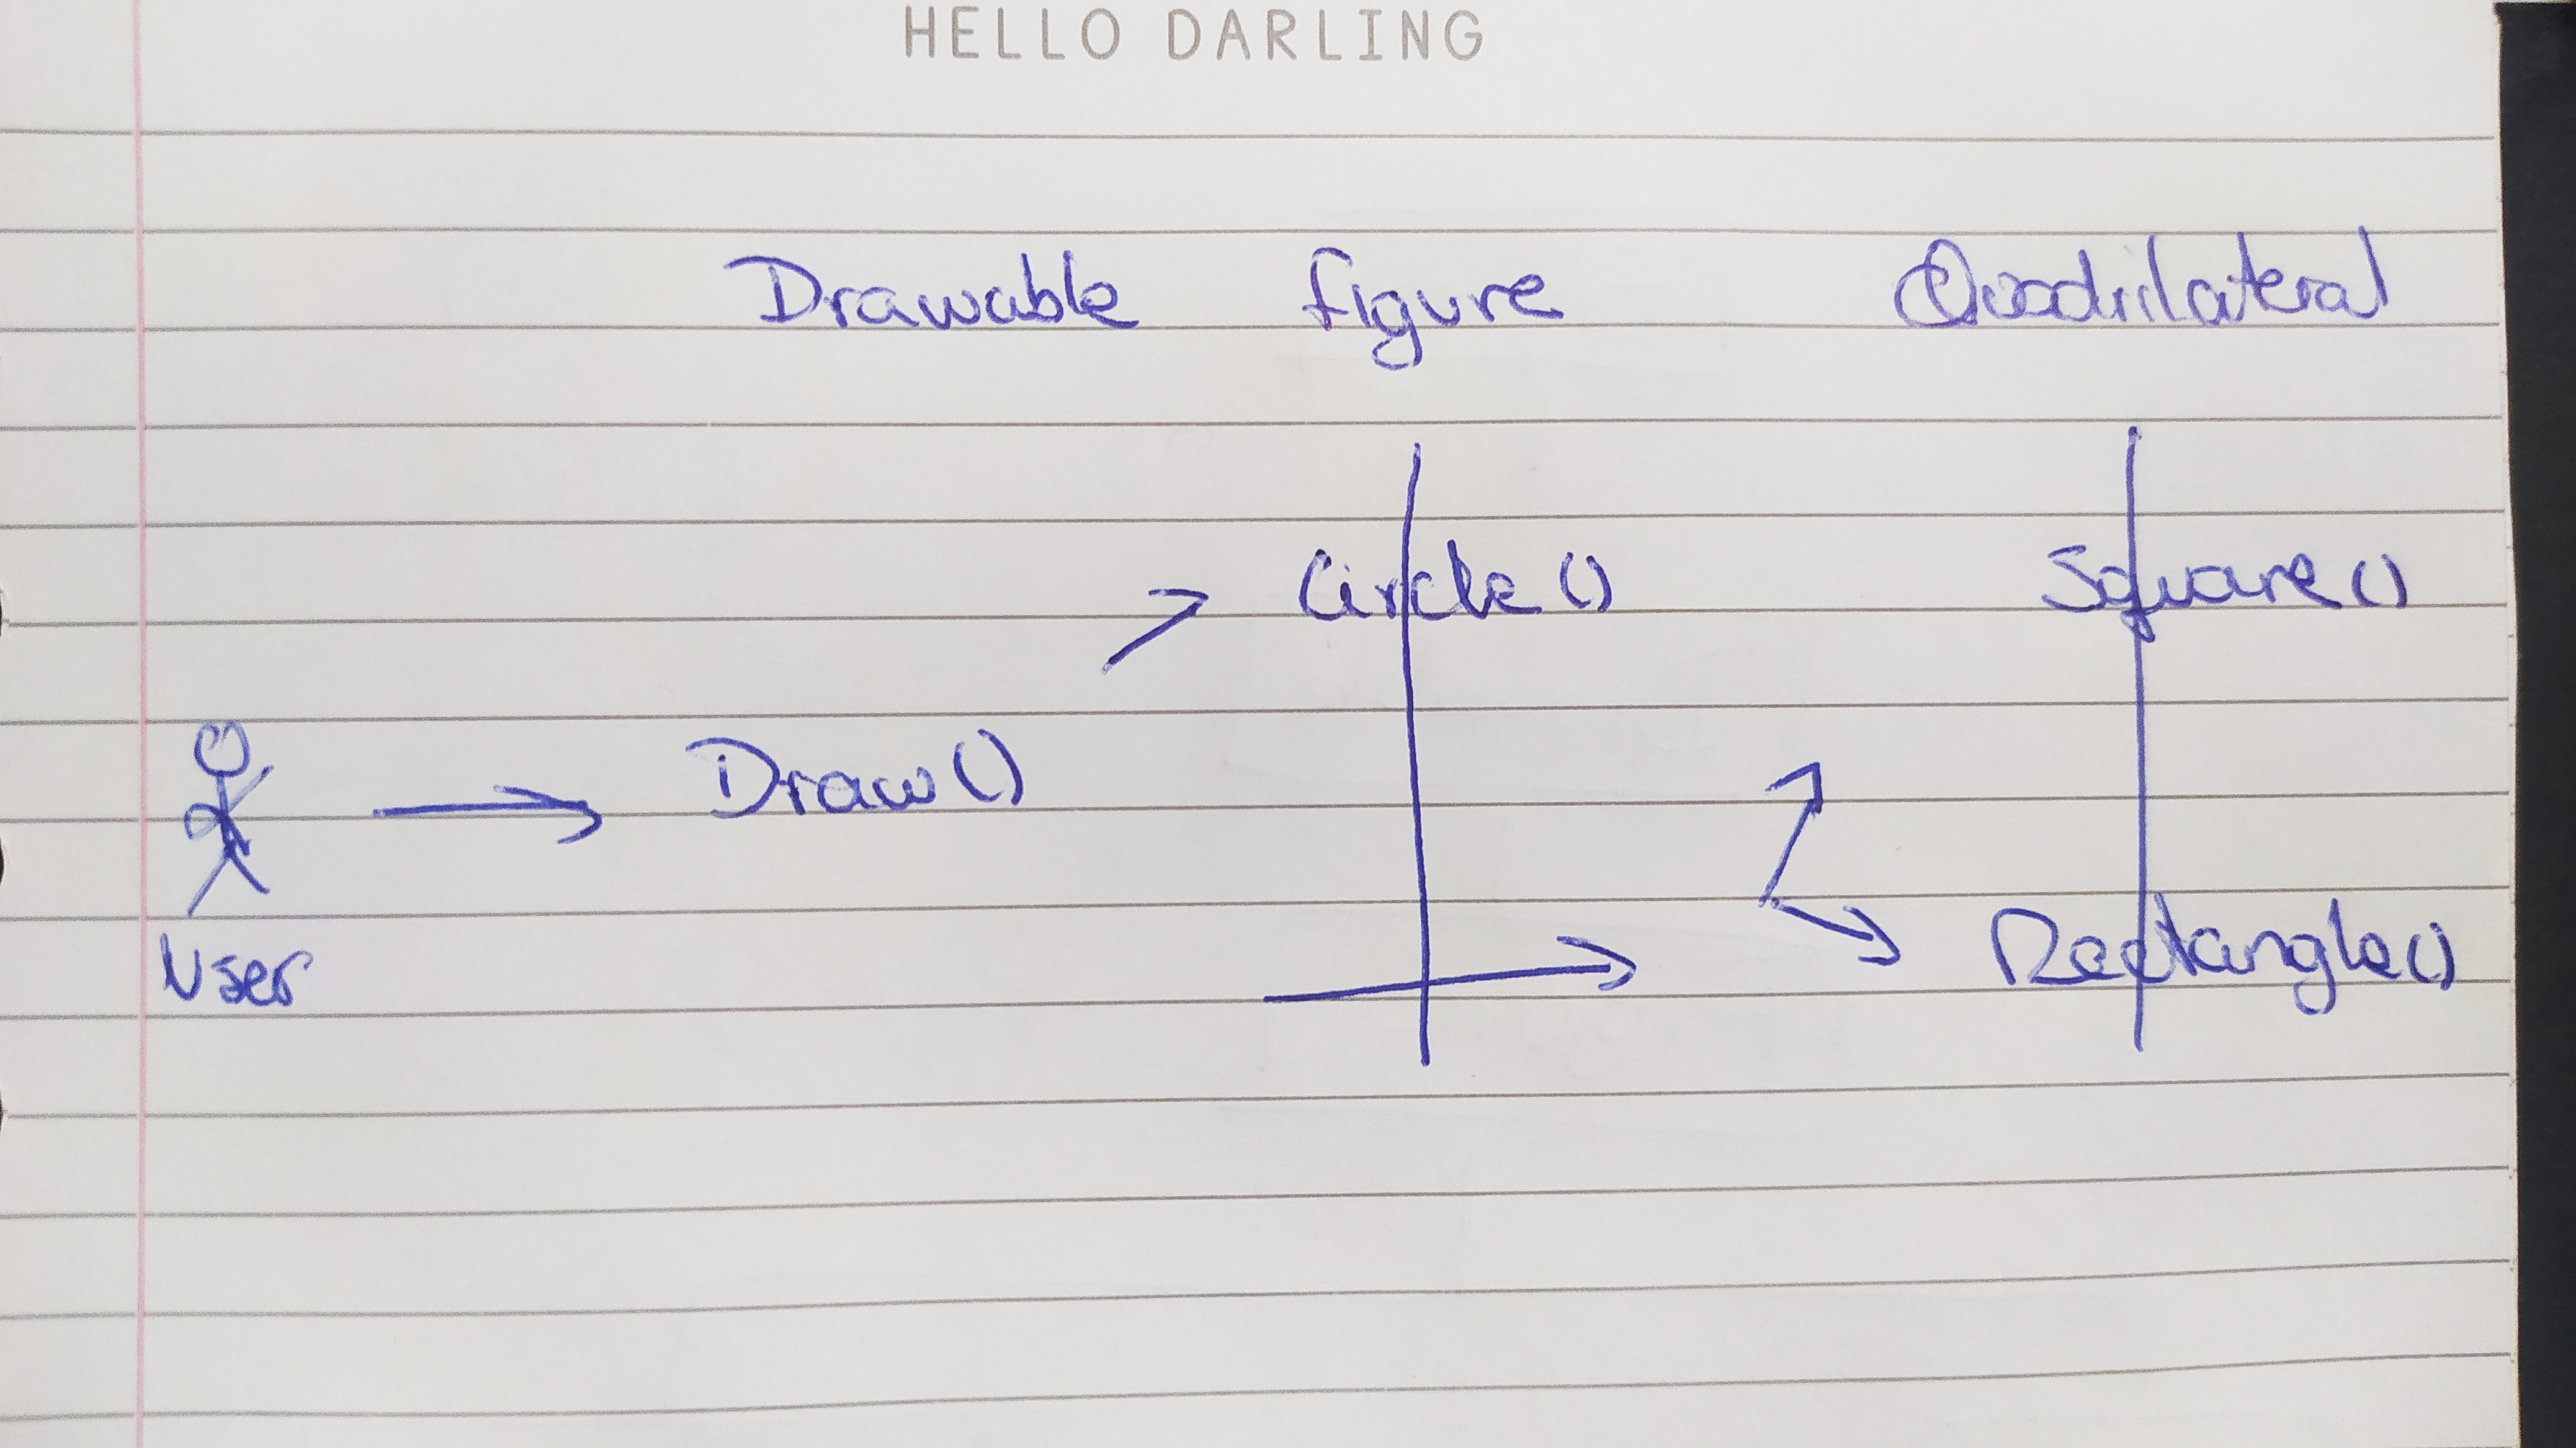 HELLO DARLING
Drawable figure Quadrilateral
Circle() Square()
Draw()
Rectangle()
User